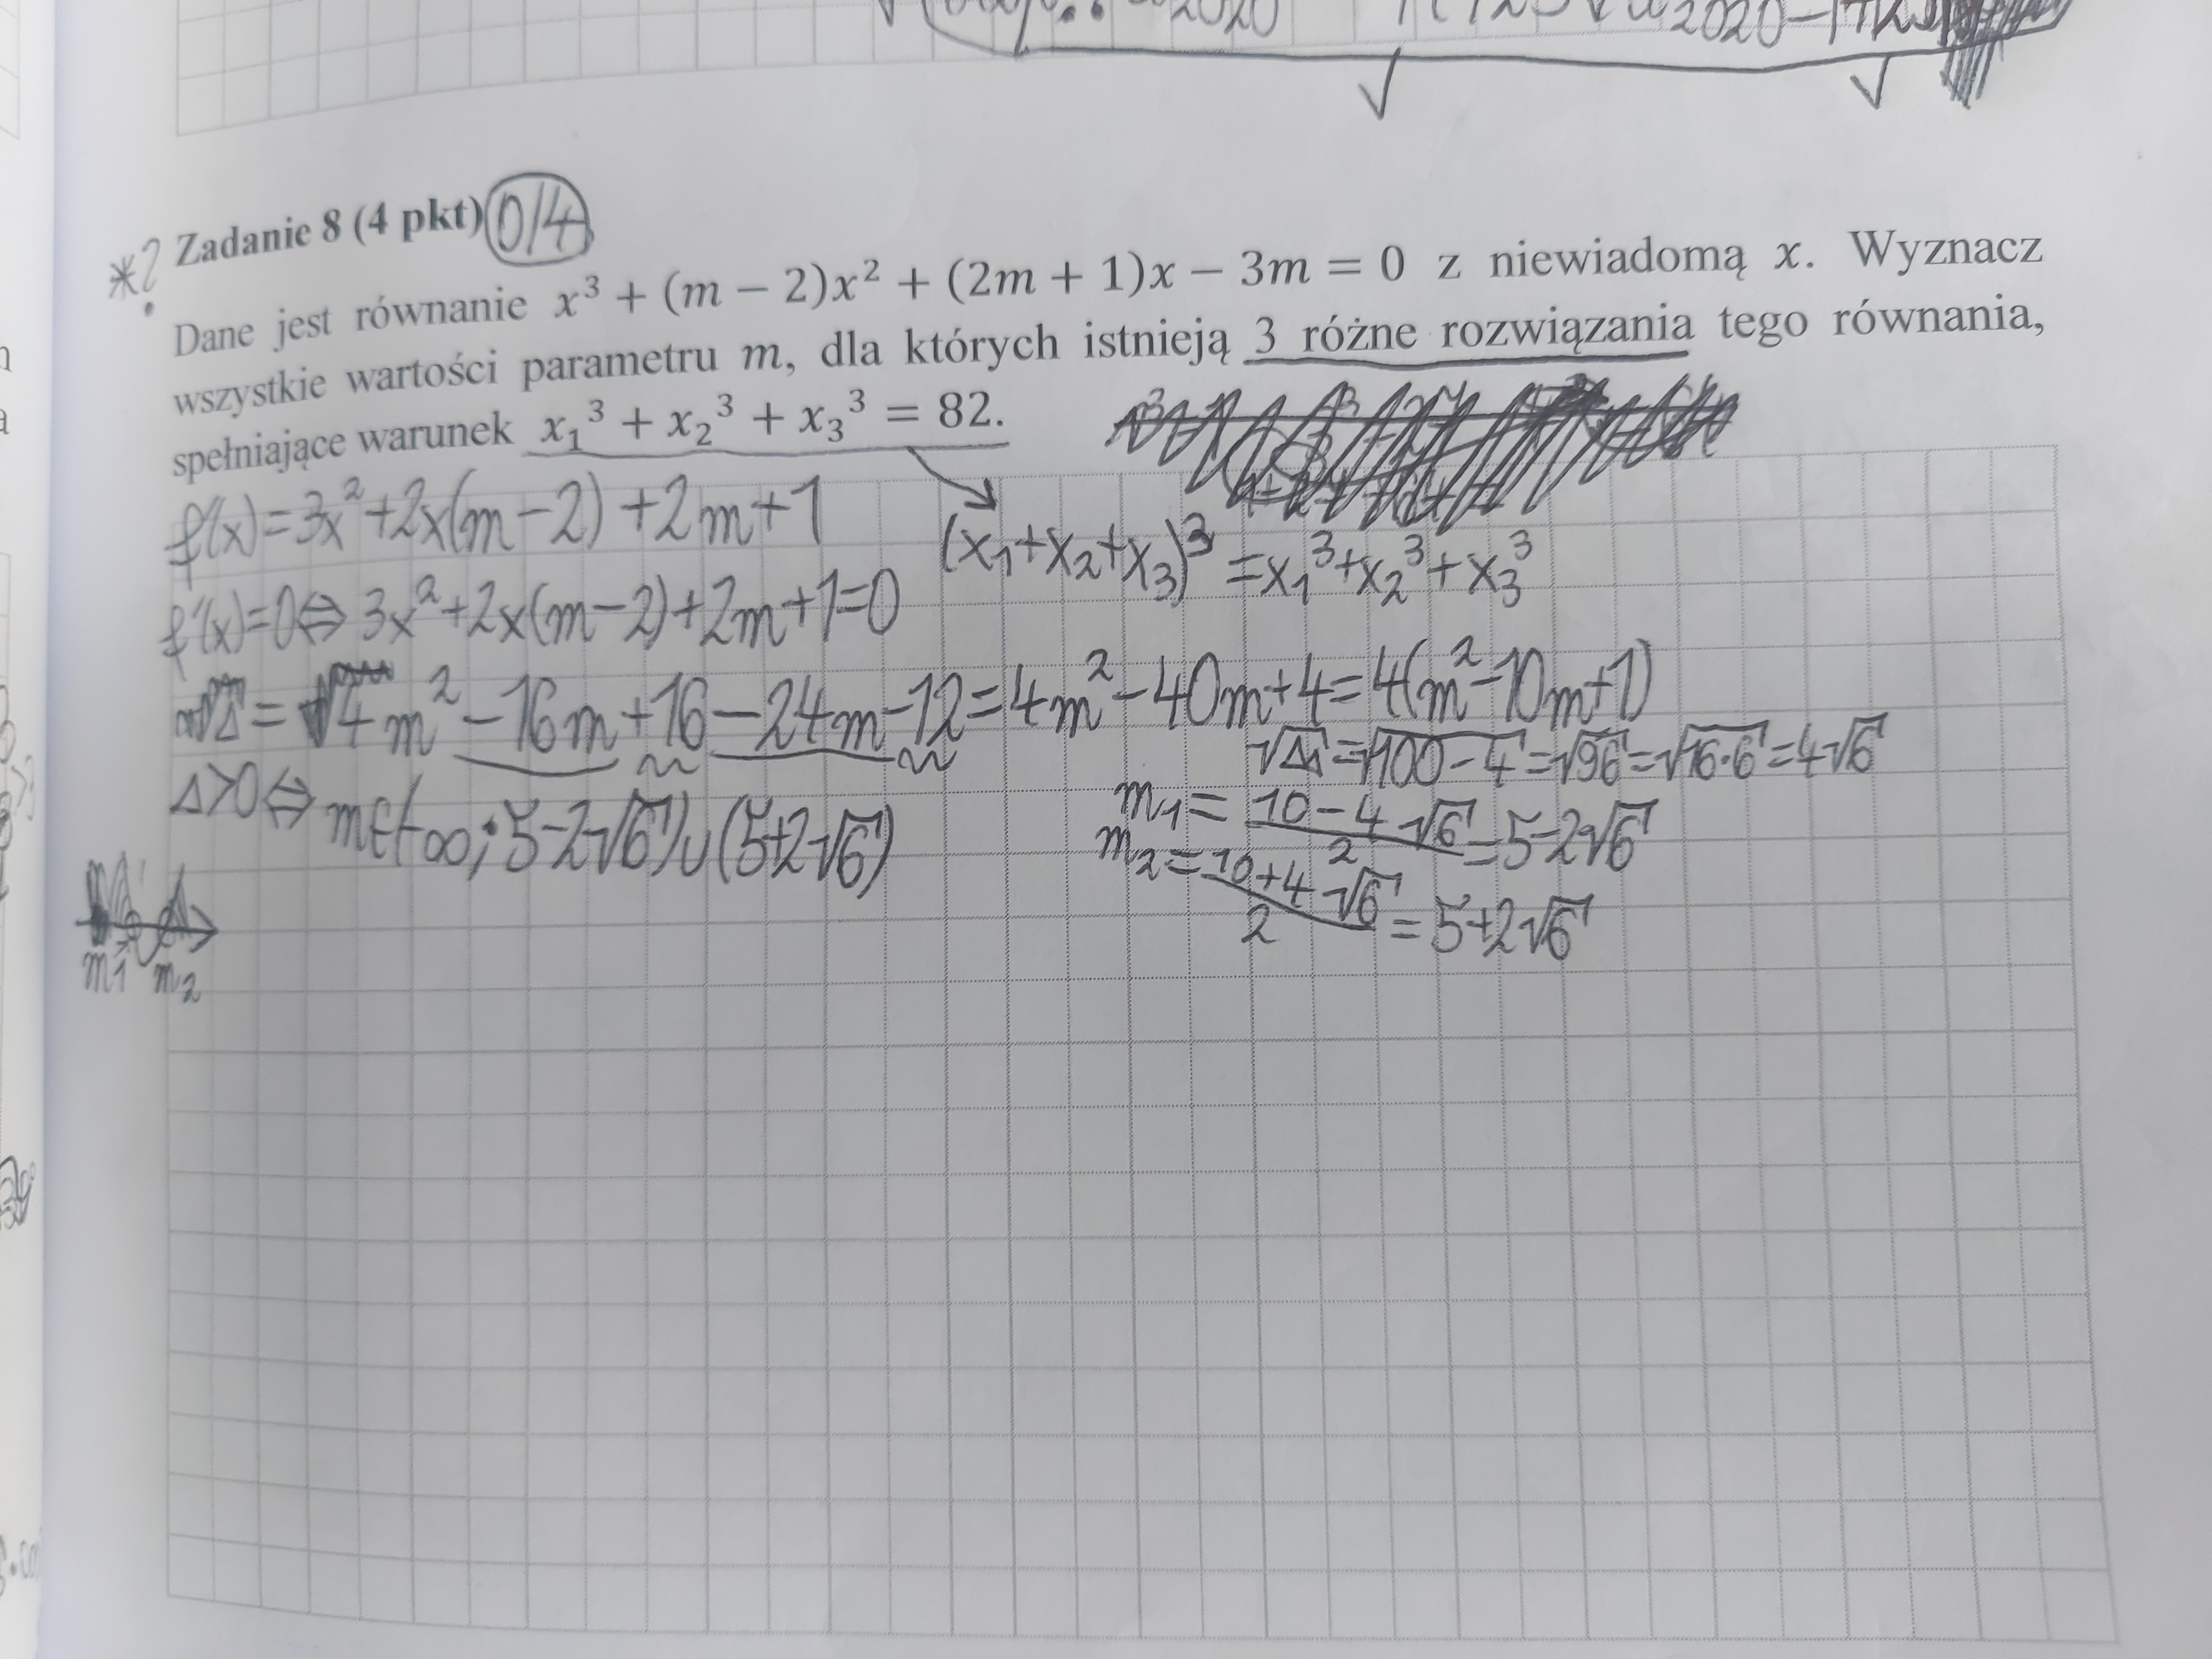 2020
2020
Zadanie 8 (4 pkt) 0/4
*?
Dane jest równanie x³ + (m − 2)x² + (2m + 1)x − 3m = 0 z niewiadomą x. Wyznacz
wszystkie wartości parametru m, dla których istnieją 3 różne rozwiązania tego równania,
spełniające warunek x₁³ + x₂³ + x₃³ = 82.
f'(x)=3x²+2x(m−2)+2m+1
(x₁+x₂+x₃)³=x₁³+x₂³+x₃³
f'(x)=0⇔3x²+2x(m−2)+2m+1=0
Δ=4m²−16m+16−24m−12=4m²−40m+4=4(m²−10m+1)
√Δ₁=√100−4=√96=√16·6=4√6
Δ>0⇔m∈(−∞;5−2√6)∪(5+2√6)
m₁=10−4√6/2=5−2√6
m₂=10+4√6/2=5+2√6
m₁ m₂